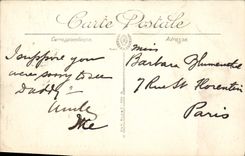 Carte Postale
Correspondance
Adresse
I suppose you
were sorry to see
Daddy
Uncle
Miss
Barbara
7 Rue St Florentin
Paris